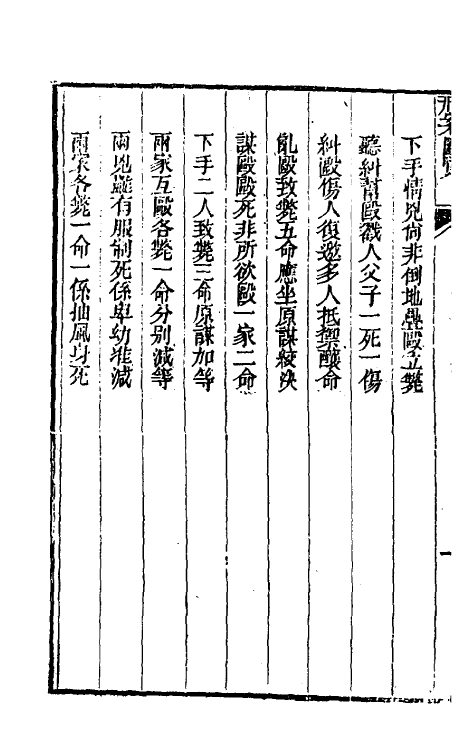 下手情兇尙非倒地疊毆立斃
聽糾幫毆戳人父子一死一傷
糾毆傷人復邀多人抵禦釀命
亂毆致斃五命應坐原謀絞決
謀毆毆死非所欲毆一家二命
下手二人致斃三命原謀加等
兩家互毆各斃一命分别減等
兩兇雖有服制死係卑幼准減
兩家各斃一命一係抽風身死